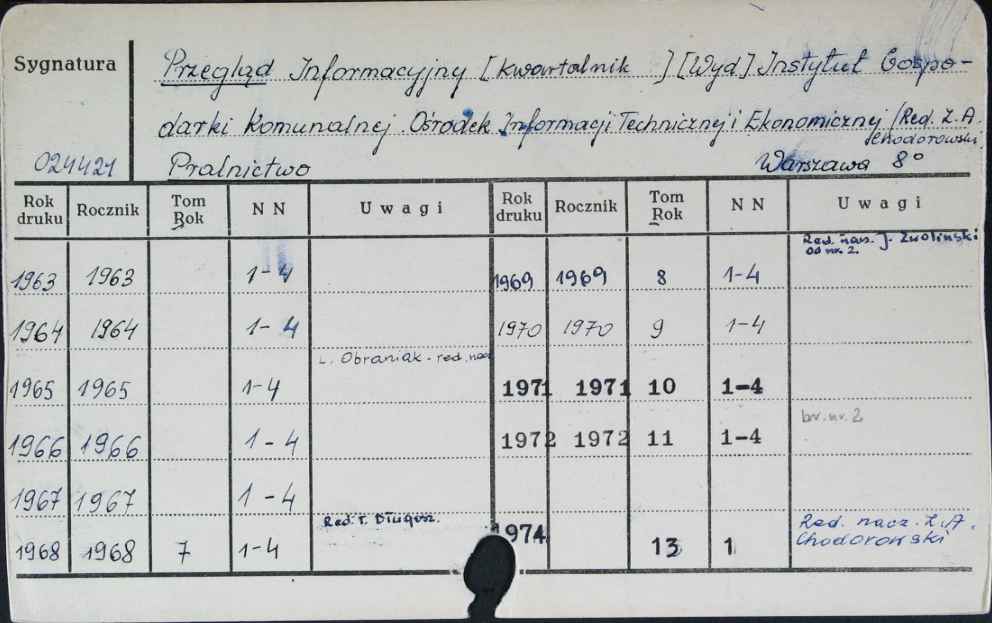 Sygnatura
Przegląd Informacyjny [kwartalnik ] [Wyd] Instytut Gospo-
darki Komunalnej. Ośrodek Informacji Technicznej i Ekonomicznej /Red. Z. A.
Chodorowski
024421 Pralnictwo Warszawa 8°
Rok druku Rocznik Tom Rok N N Uwagi Rok druku Rocznik Tom Rok N N Uwagi
Red. nacz. J. Zwoliński
od nr. 2.
1963 1963 1-4 1969 1969 8 1-4
1964 1964 1-4 1970 1970 9 1-4
L. Obraniak - red. nacz
1965 1965 1-4 1971 1971 10 1-4
br. nr. 2
1966 1966 1-4 1972 1972 11 1-4
1967 1967 1-4
Red. T. Długosz. Red. nacz. Z. A.
1968 1968 7 1-4 1974 13 1 Chodorowski